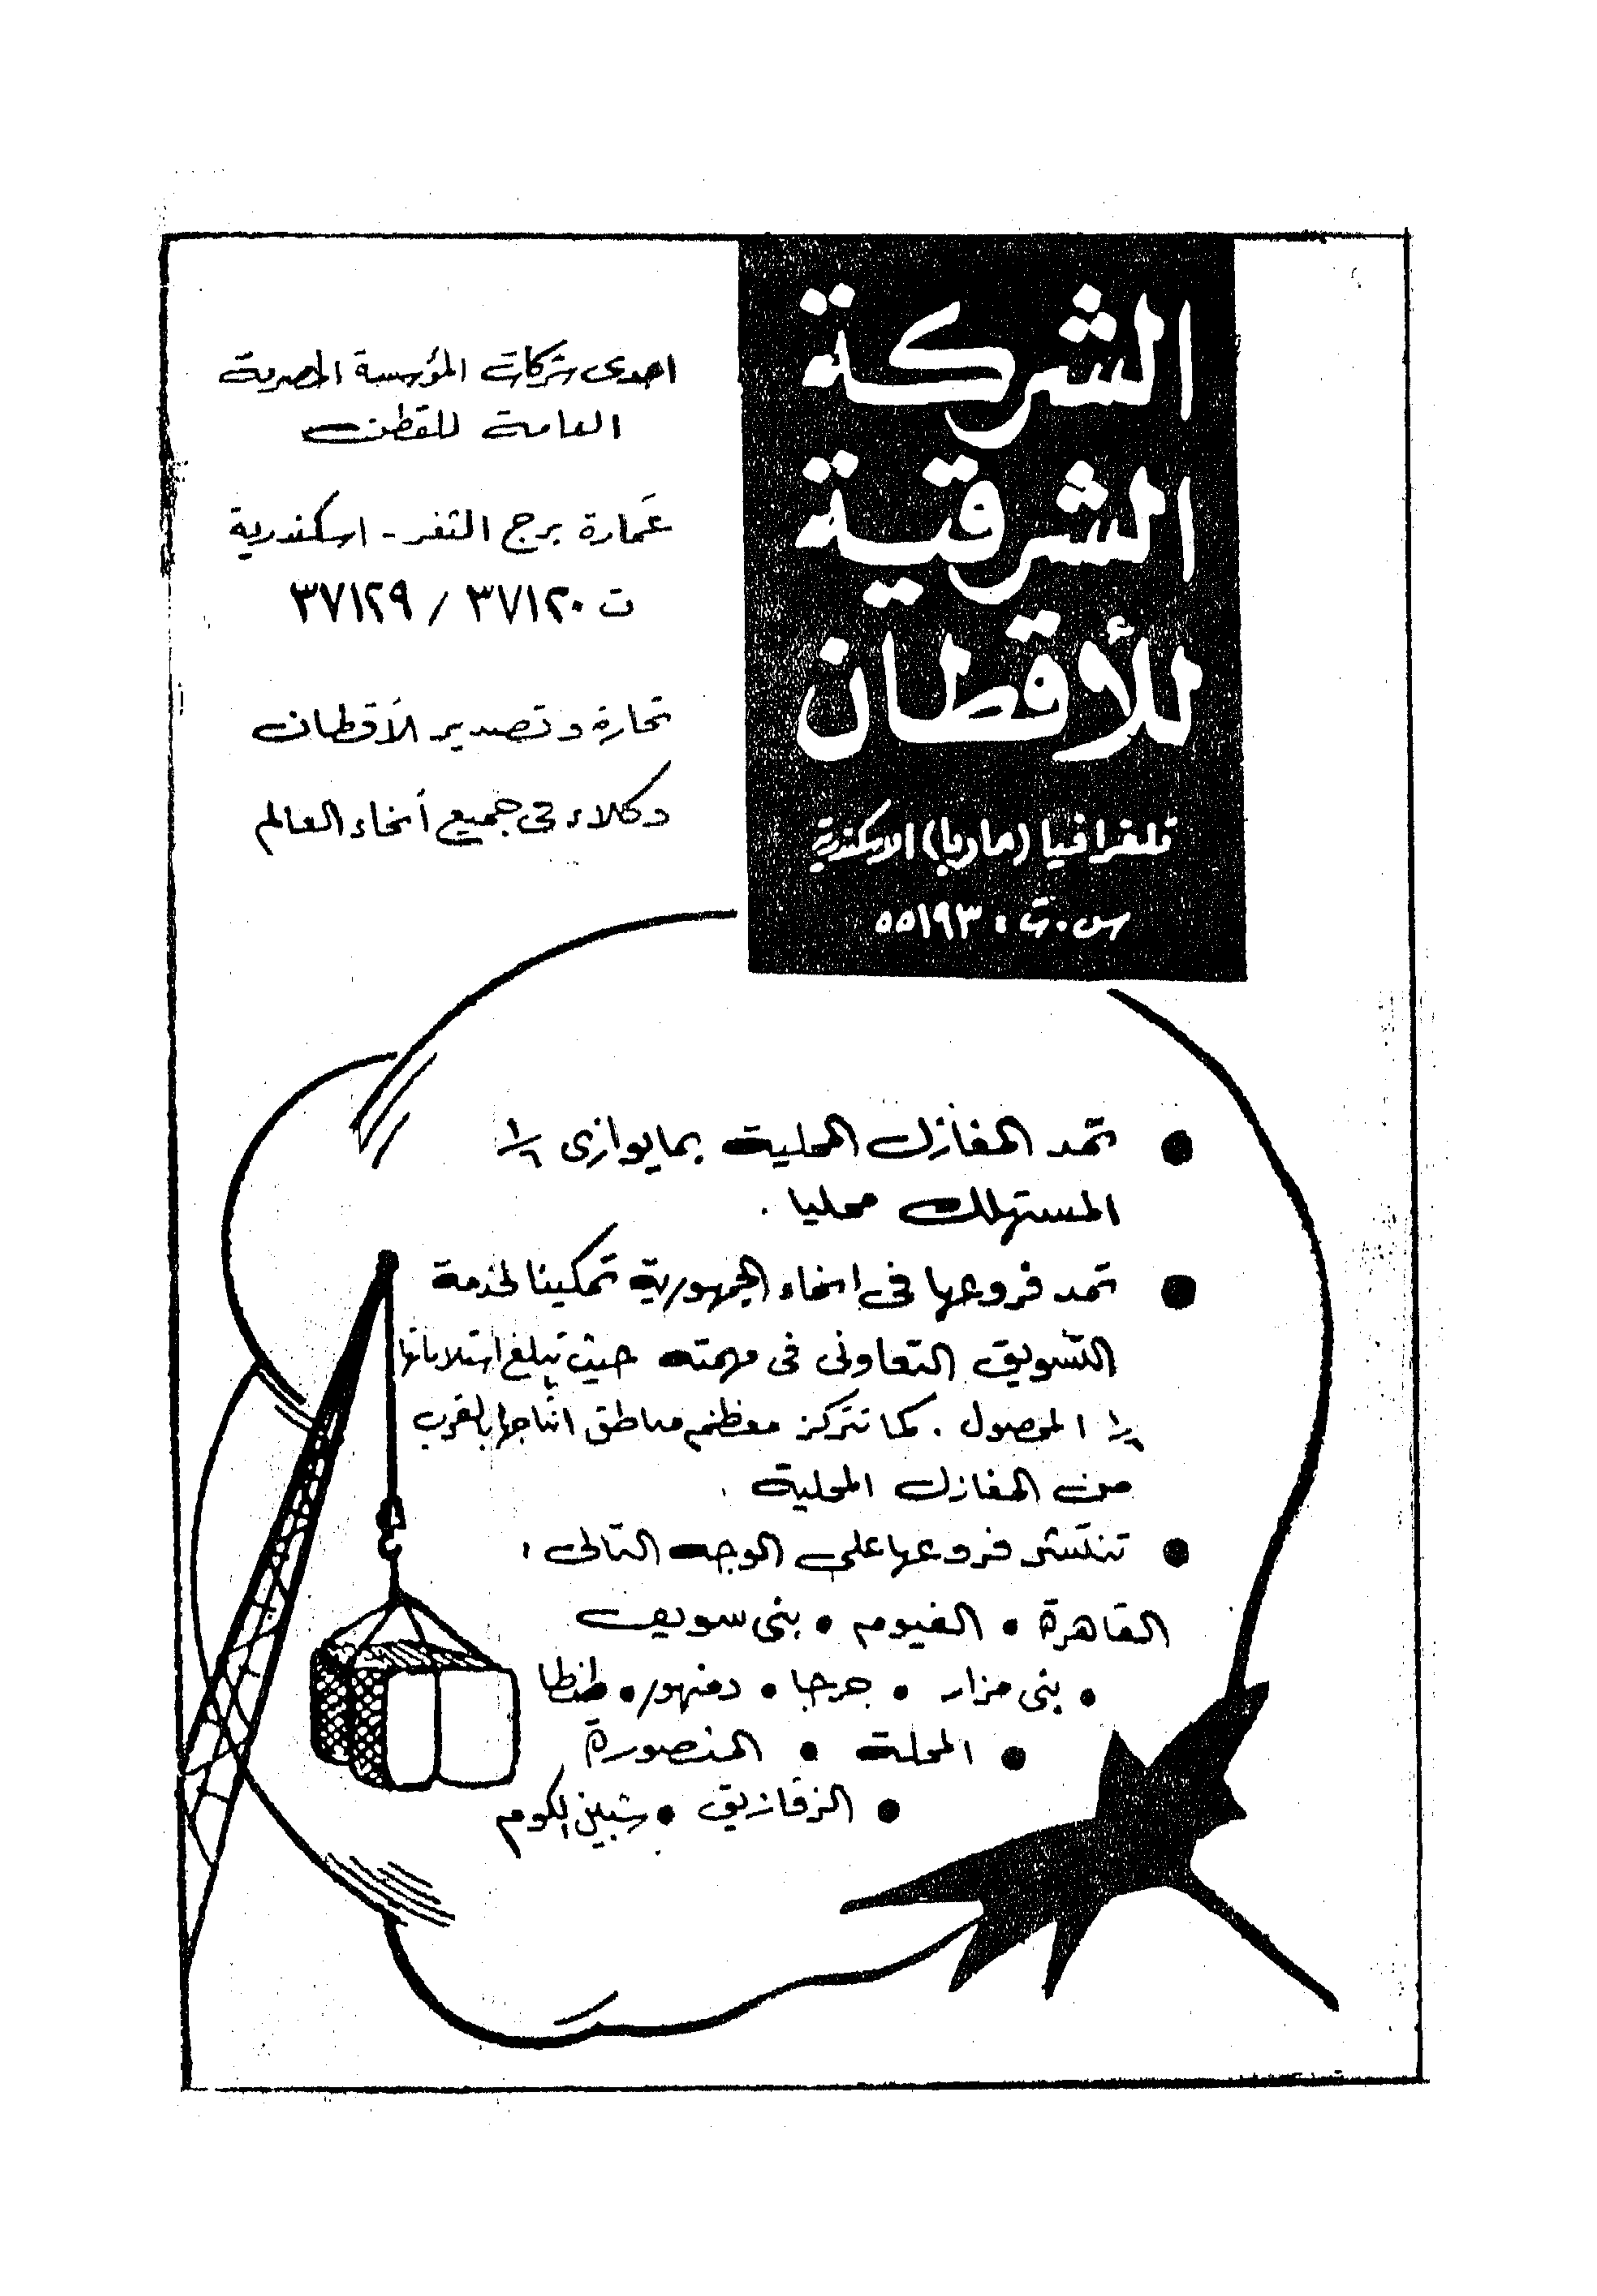 الشركة
الشرقية
للأقطان
تلغرافيا (ماريا) الاسكندرية
س.ت: ٥٥١٩٣
احدى شركات المؤسسة المصرية
العامة للقطن
عمارة برج الثغر - اسكندرية
ت ٣٧١٢٠ / ٣٧١٢٩
تجارة وتصدير الأقطان
وكلاء فى جميع أنحاء العالم
● تمد المغازل المحلية بما يوازى
المستهلك محليا .
● تمد فروعها فى انحاء الجمهورية تمكينا لخدمة
التسويق التعاونى فى مهمته حيث تبلغ استلاماتها
المحصول . كما تتركز معظم مناطق انتاجها بالقرب
من المغازل المحلية .
● تنتشر فروعها على الوجه التالى :
القاهرة ● الفيوم ● بنى سويف
● بنى مزار ● جرجا ● دمنهور ● طنطا
● المحلة ● المنصورة
● الزقازيق ● شبين الكوم